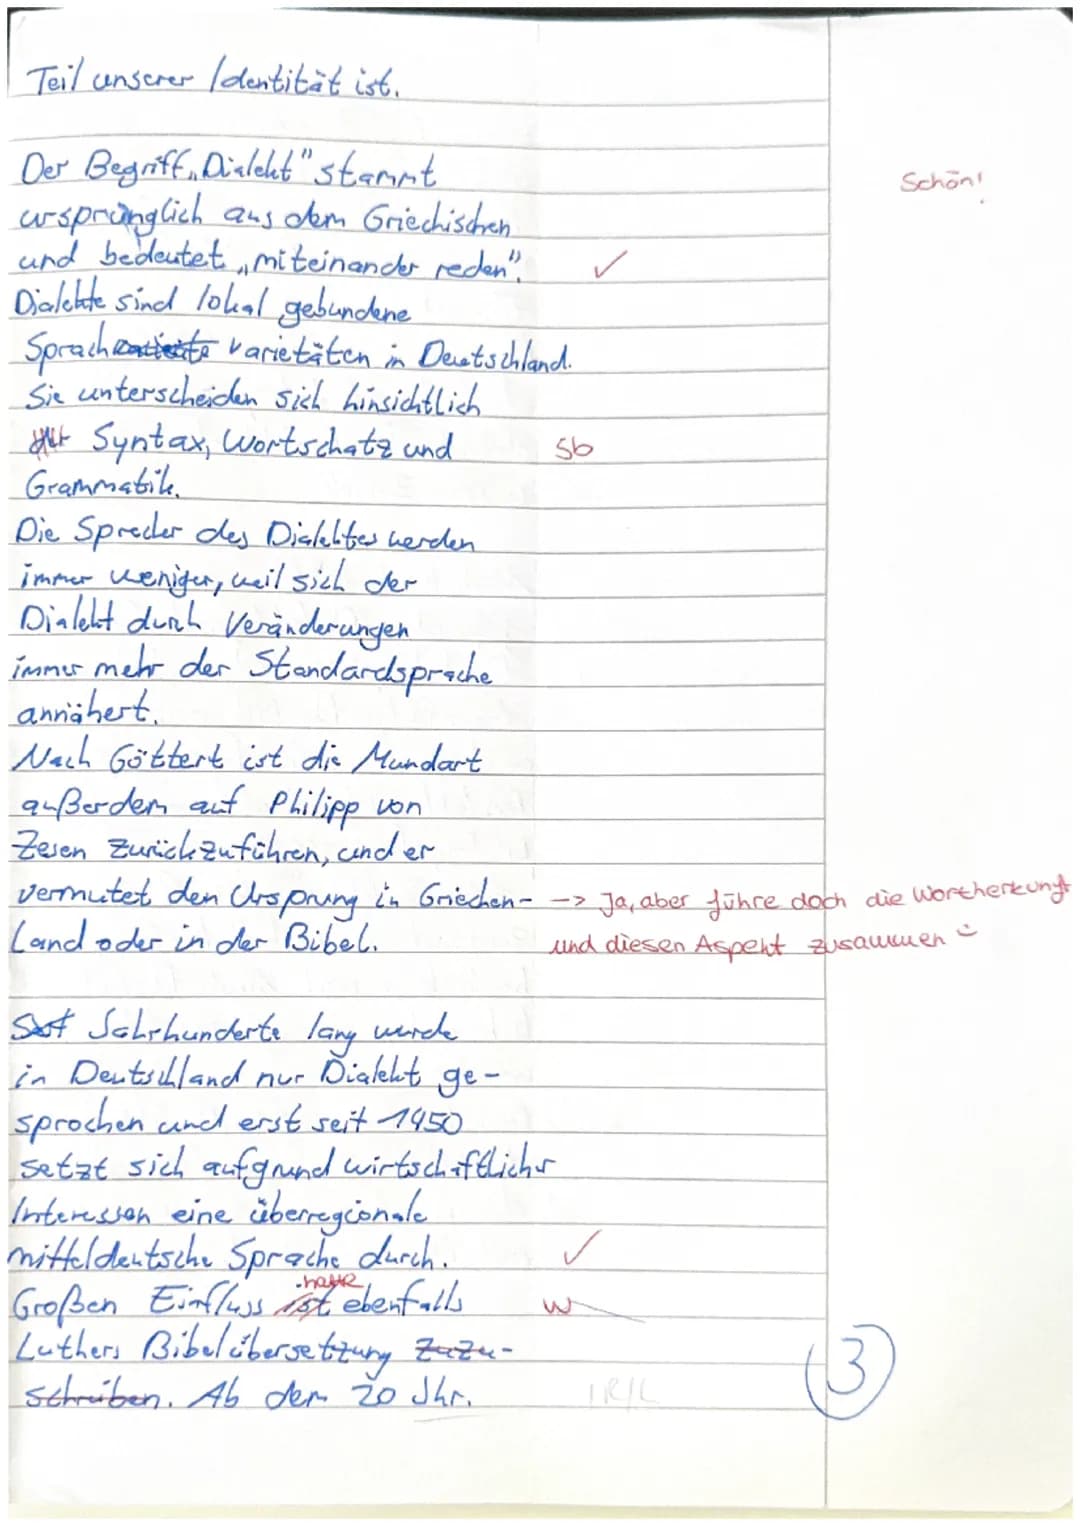 Teil unserer Identität ist.
Der Begriff „Dialekt" stammt
Schön!
ursprünglich aus dem Griechischen
und bedeutet „miteinander reden". ✓
Dialekte sind lokal gebundene
Sprach varietäten in Deutschland.
Sie unterscheiden sich hinsichtlich
Syntax, Wortschatz und Sb
Grammatik.
Die Sprecher des Dialektes werden
immer weniger, weil sich der
Dialekt durch Veränderungen
immer mehr der Standardsprache
annähert.
Nach Göttert ist die Mundart
außerdem auf Philipp von
Zesen zurückzuführen, und er
vermutet den Ursprung in Griechen- -> Ja, aber führe doch die Wortherkunft
land oder in der Bibel. und diesen Aspekt zusammen
Jahrhunderte lang wurde
in Deutschland nur Dialekt ge-
sprochen und erst seit 1450
setzt sich aufgrund wirtschaftlicher
Interessen eine überregionale
mitteldeutsche Sprache durch. ✓
hatte
Großen Einfluss ist ebenfalls W
Luthers Bibelübersetzung zuzu-
schreiben. Ab dem 20 Jhr.
3